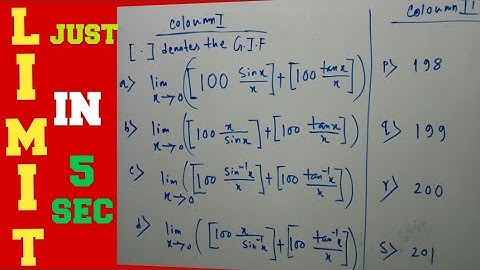 LIMIT
JUST
IN
5
SEC
Coloumn I
[.] denotes the G.I.F
a) lim x→0 ([100 sinx/x] + [100 tanx/x])
b) lim x→0 ([100 x/sinx] + [100 tanx/x])
c) lim x→0 ([100 sin⁻¹x/x] + [100 tan⁻¹x/x])
d) lim x→0 ([100 x/sin⁻¹x] + [100 tan⁻¹x/x])
Coloumn II
p) 198
q) 199
r) 200
s) 201